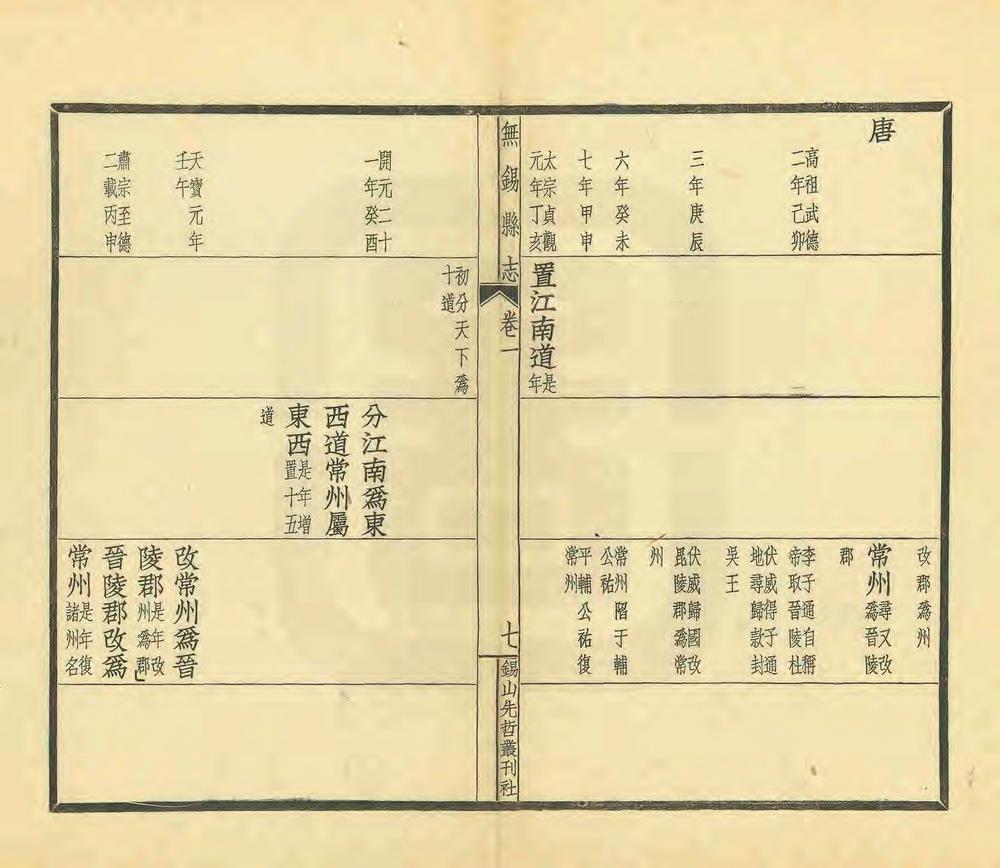 唐
高祖武德
二年己卯
三年庚辰
六年癸未
七年甲申
太宗貞觀
元年丁亥
置江南道是年
改郡爲州
常州尋又改爲晉陵
郡
李子通自稱
帝取晉陵杜
伏威得子通
地尋歸款封
吳王
伏威歸國改
毘陵郡爲常
州
常州陷于輔
公祐
平輔公祐復
常州
無錫縣志
卷一
七
錫山先哲叢刊社
開元二十
一年癸酉
天寶元年
壬午
肅宗至德
二載丙申
初分天下爲
十道
分江南爲東
西道常州屬
東西是年增置十五
道
改常州爲晉
陵郡是年改州爲郡」
晉陵郡改爲
常州是年復諸州名